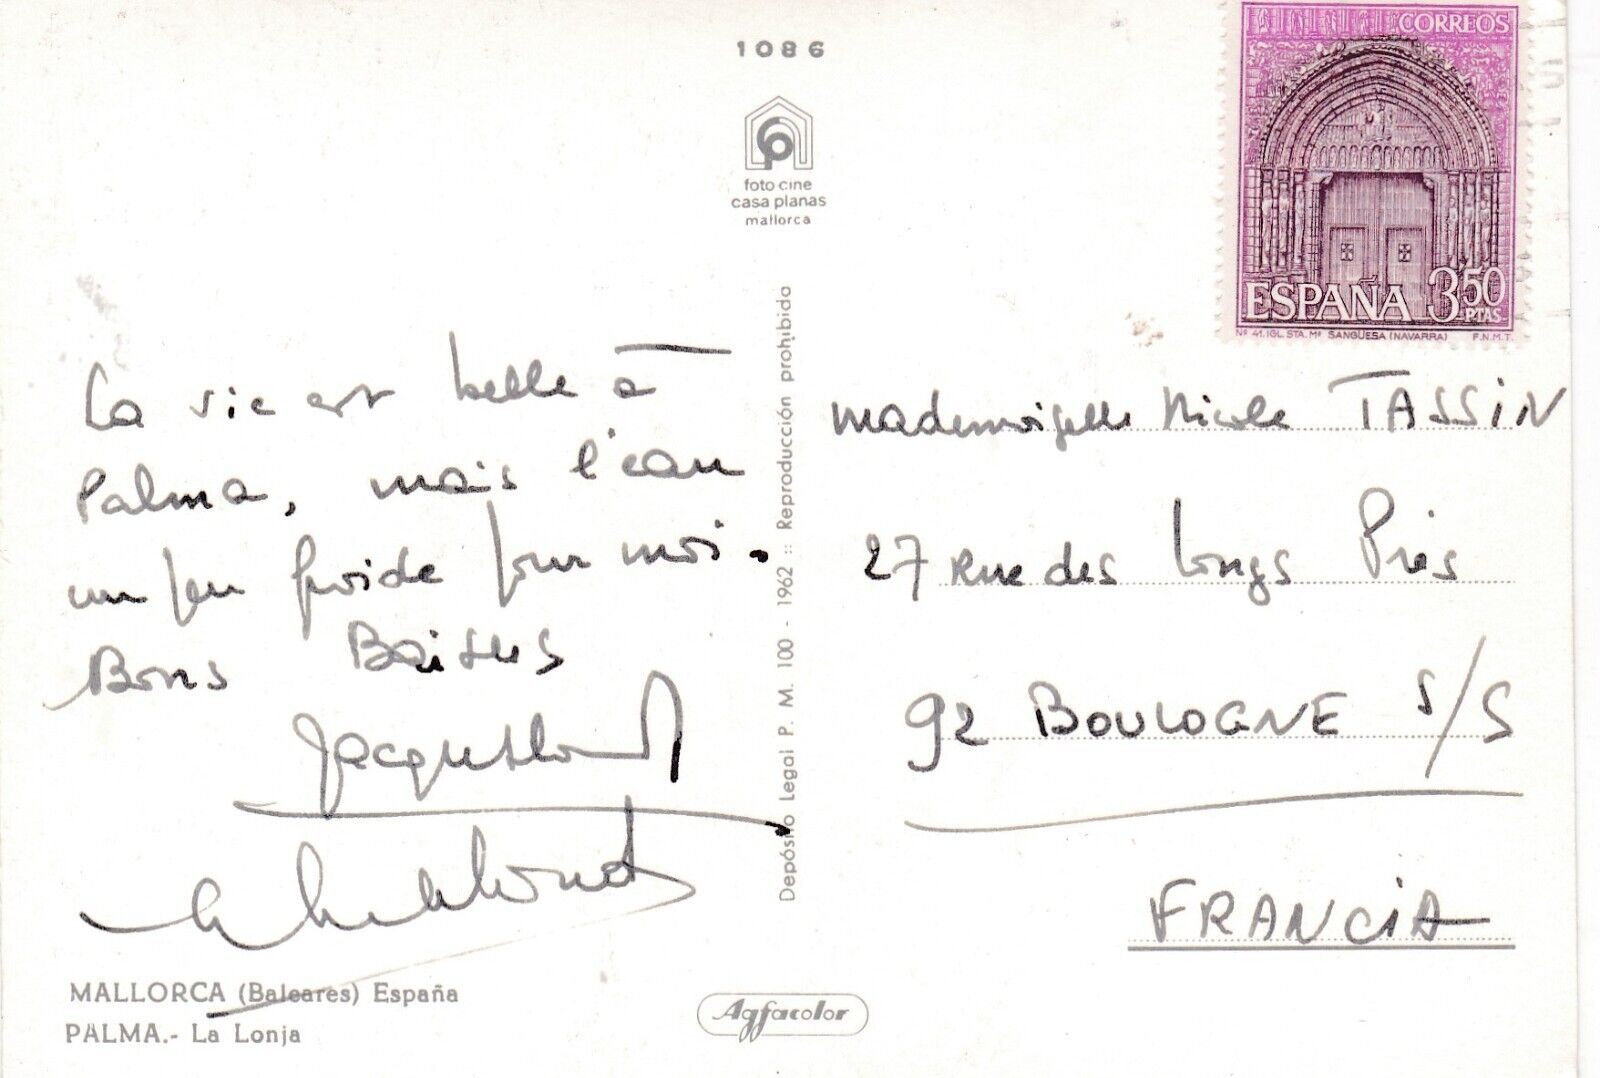 1086
foto cine
casa planas
mallorca
CORREOS
ESPAÑA 3'50
PTAS.
Nº 41.IGL. STA. Mª SANGÜESA (NAVARRA) F.N.M.T.
La vie est belle à
Palma, mais l'eau
un peu froide pour moi.
Bons Baisers
Mademoiselle Nicole TASSIN
27 Rue des Longs Prés
92 BOULOGNE S/S
FRANCIA
Depósito Legal P. M. 100 - 1962 :: Reproducción prohibida
MALLORCA (Baleares) España
PALMA.- La Lonja
Agfacolor